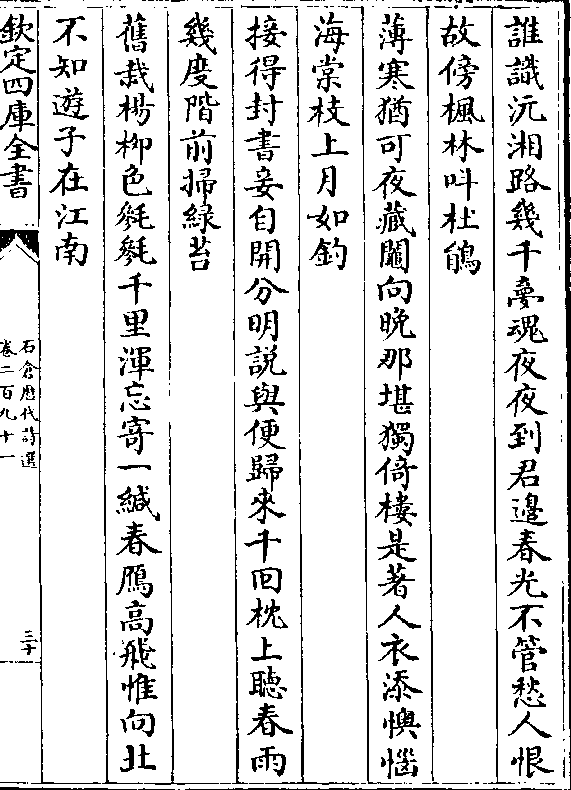 誰識沅湘路幾千夢魂夜夜到君邊春光不管愁人恨
故傍楓林呌杜鵑
薄寒猶可夜藏鬮向晚那堪獨倚樓是著人衣添懊惱
海棠枝上月如鈎
接得封書妾自開分明説與便歸來千回枕上聽春雨
幾度階前掃緑苔
舊栽楊栁色毿毿千里渾忘寄一緘春鴈高飛惟向北
不知遊子在江南
欽定四庫全書
石倉歴代詩選
卷二百九十一
三十